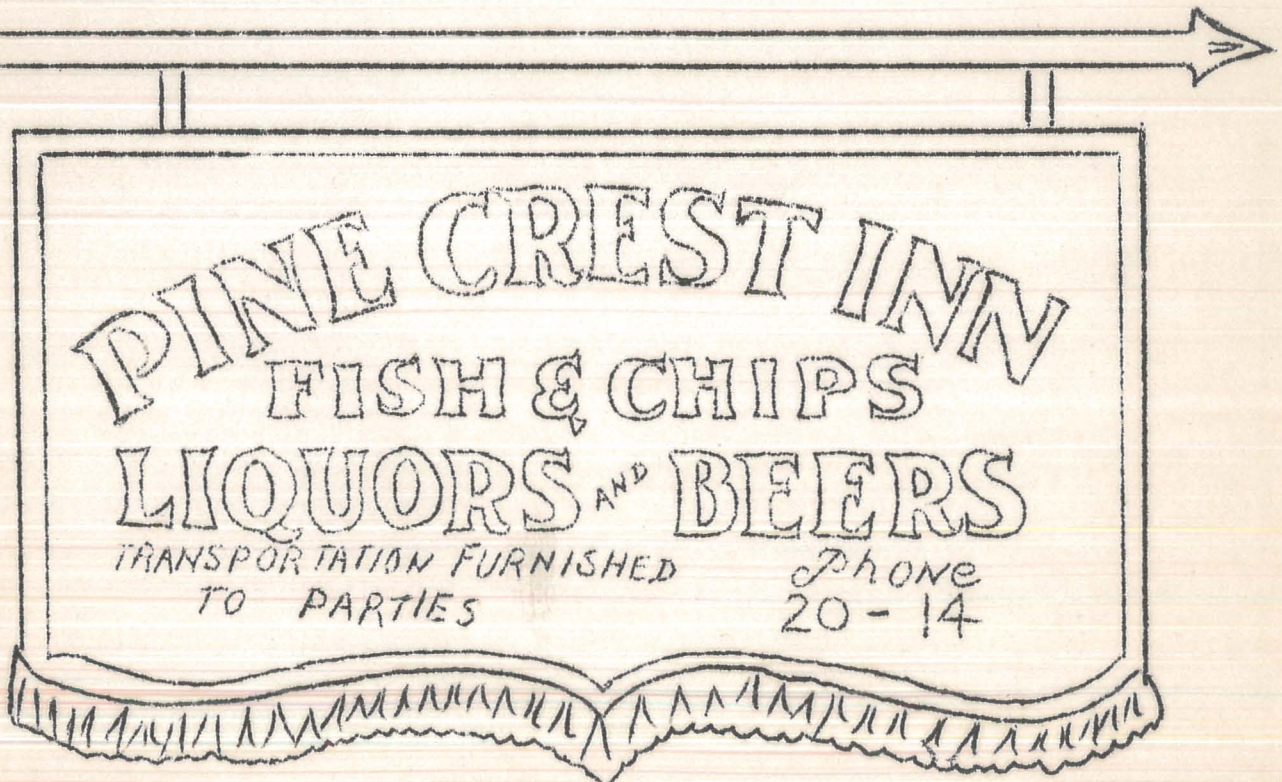 PINE CREST INN
FISH & CHIPS
LIQUORS AND BEERS
TRANSPORTATION FURNISHED
TO PARTIES
Phone
20-14